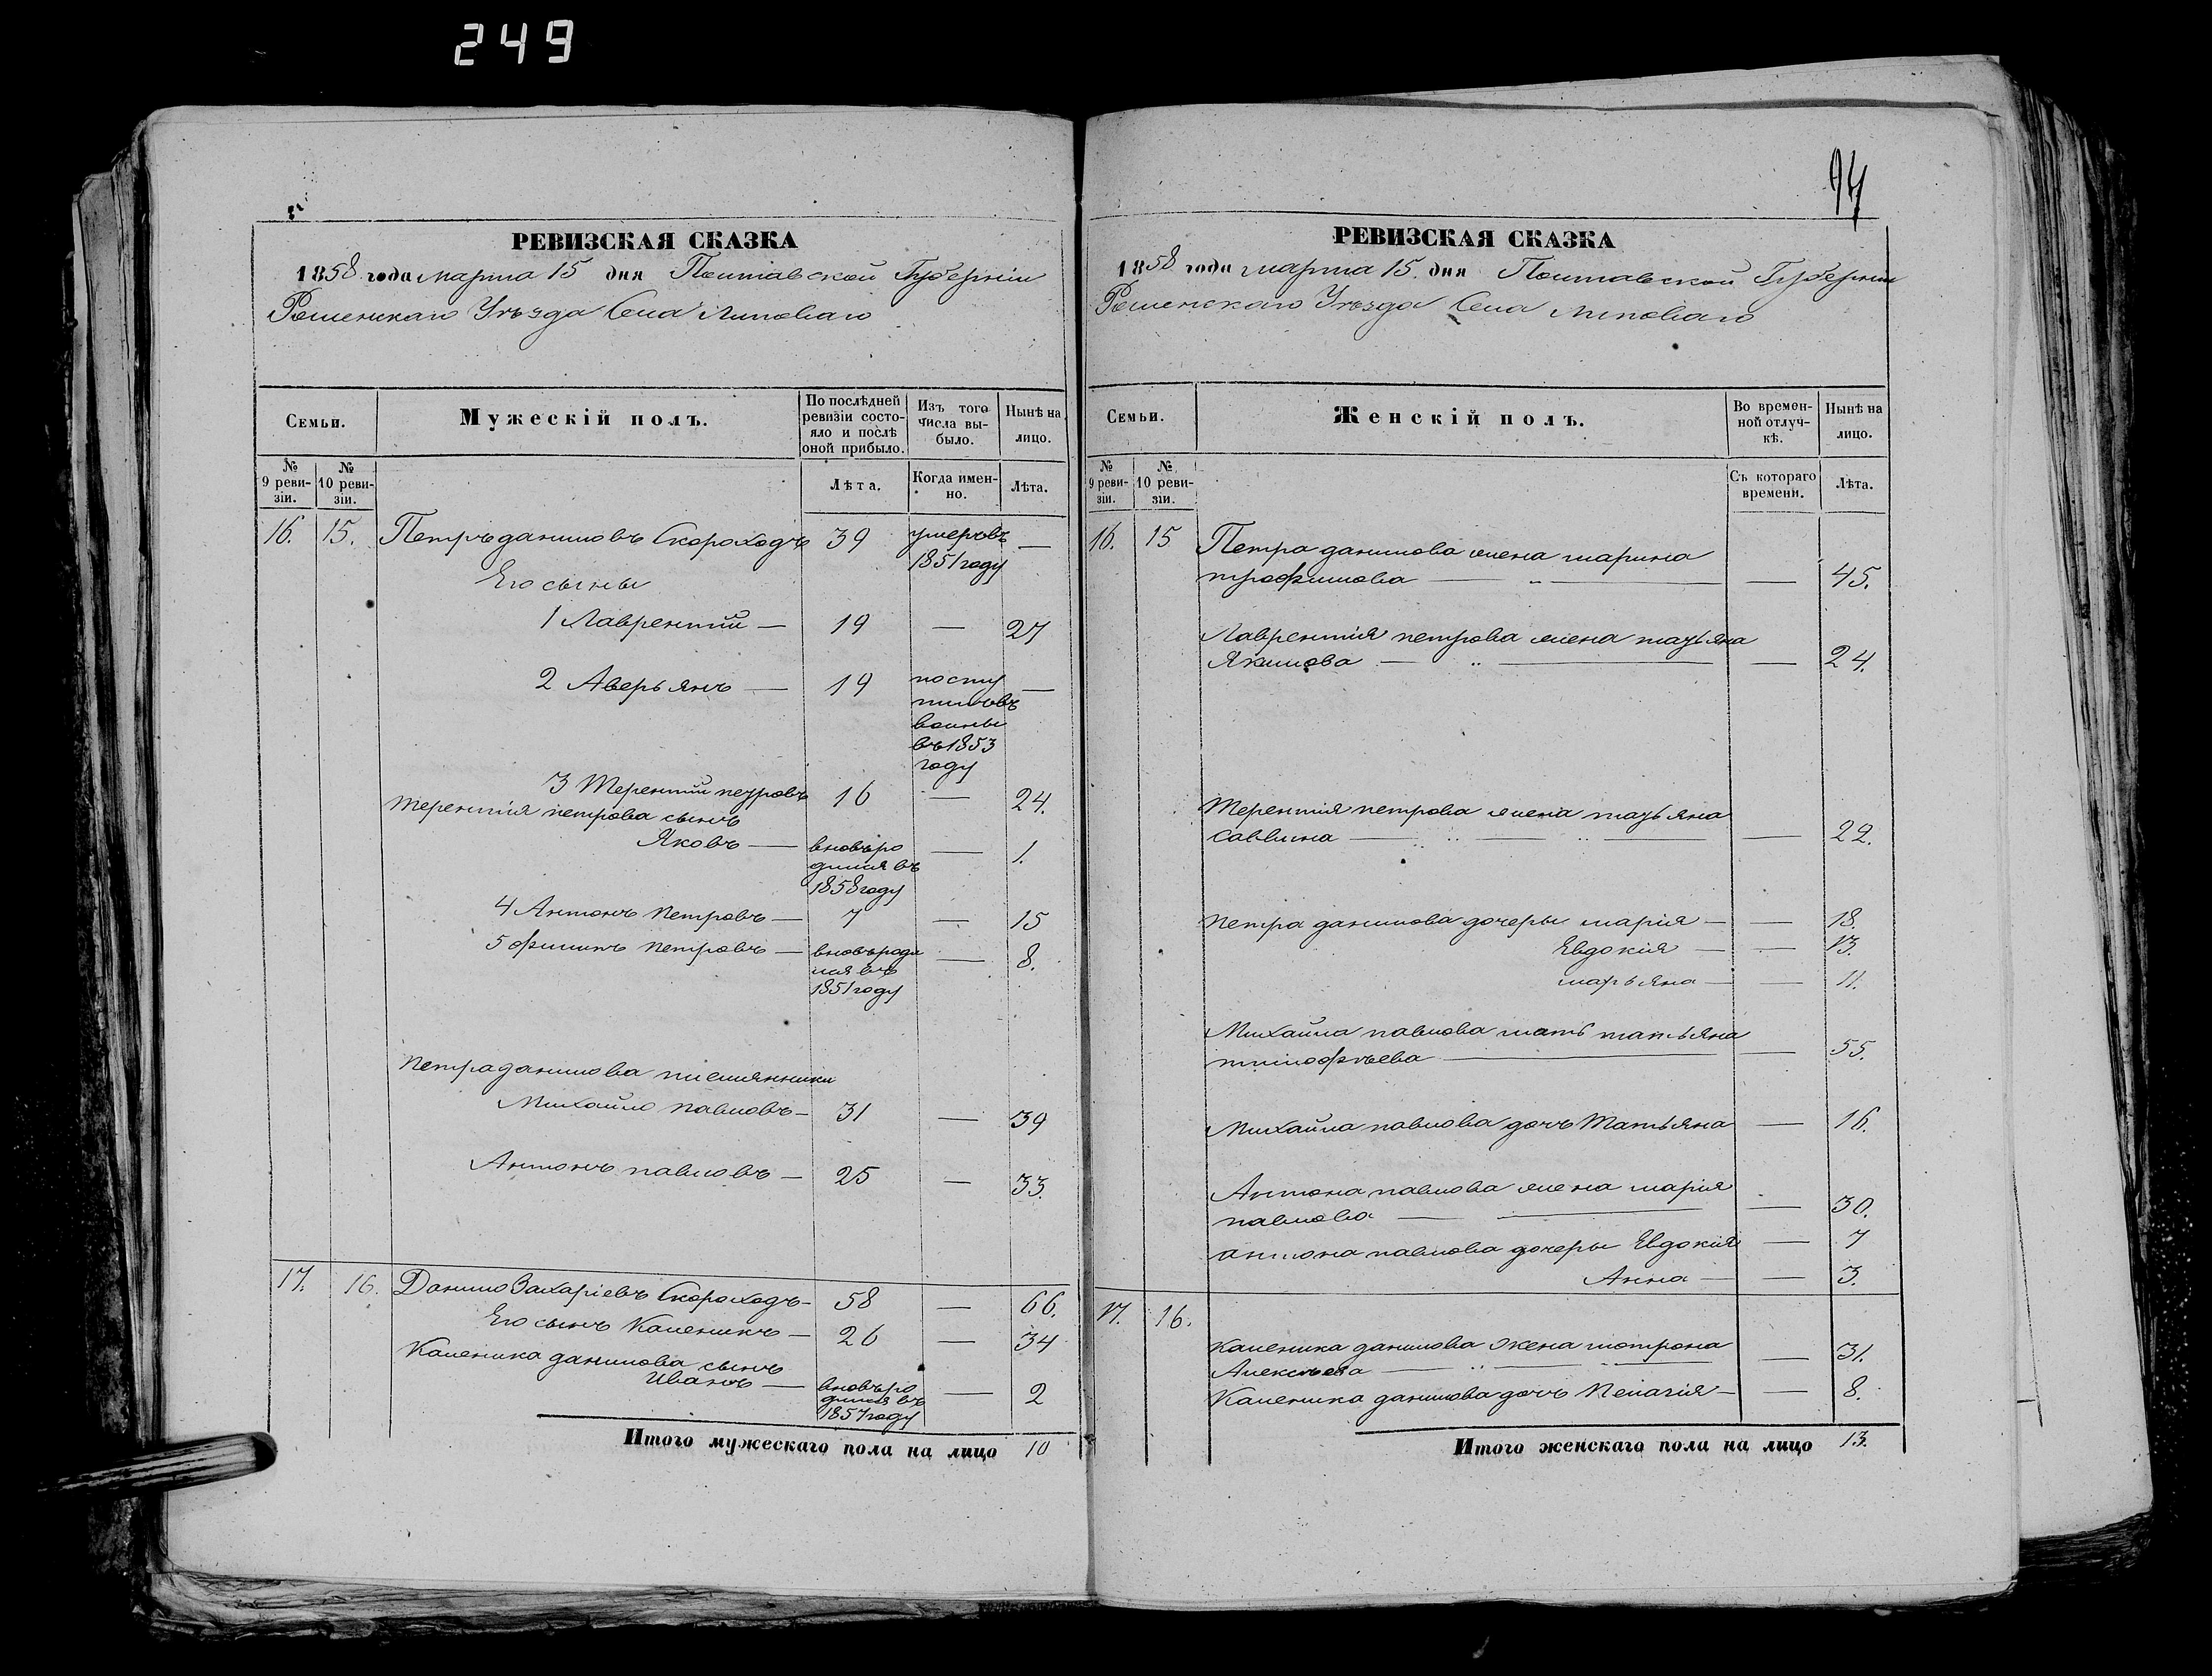 249
94
РЕВИЗСКАЯ СКАЗКА
1858 года марта 15 дня Полтавской Губерніи
Роменскаго Уѣзда Села Липоваго
Семьи.
Мужескій полъ.
По послѣдней ревизіи состояло и послѣ оной прибыло.
Изъ того числа выбыло.
Нынѣ на лицо.
№ 9 ревизіи.
№ 10 ревизіи.
Лѣта.
Когда именно.
Лѣта.
16. 15. Петръ даниловъ Скороходъ 39 умеръ въ 1851 году —
Его сыны
1 Лаврентій — 19 — 27
2 Аверьянъ — 19 посту
пилъ въ
воины
въ 1853
году —
3 Терентій петровъ 16 — 24.
терентія петрова сынъ
Яковъ — вновь ро
дился въ
1858 году — 1.
4 Антонъ петровъ — 7 — 15
5 филипъ петровъ — вновь роди
лся въ
1851 году — 8.
петра данилова племянники
Михайло павловъ — 31 — 39
Антонъ павловъ — 25 — 33.
17. 16. Данило Захаріевъ Скороходъ — 58 — 66.
Его сынъ Каленикъ — 26 — 34
Каленика данилова сынъ
Иванъ — вновь ро
дился въ
1857 году — 2
Итого мужескаго пола на лицо 10
РЕВИЗСКАЯ СКАЗКА
1858 года марта 15. дня Полтавской Губерніи
Роменскаго Уѣзда Села Липоваго
Семьи.
Женскій полъ.
Во временной отлучкѣ.
Нынѣ на лицо.
№ 9 ревизіи.
№ 10 ревизіи.
Съ котораго времени.
Лѣта.
16. 15 Петра данилова жена марина
трофимова — „ — — 45.
Лаврентія петрова жена татьяна
Якимова — „ — — 24.
Терентія петрова жена татьяна
саввина — „ — „ — — 22.
петра данилова дочеры марія — — 18.
Евдокія — — 13.
марьяна — — 11.
Михайла павлова мать татьяна
тимофѣева — — 55.
Михайла павлова дочь Татьяна — 16.
Антона павлова жена марія
павлова — — — 30.
антона павлова дочеры Евдокія — 7
Анна — — 3.
17. 16.
каленика данилова жена мотрона
Алексѣева — „ — „ — — 31.
Каленика данилова дочь Пелагія — — 8.
Итого женскаго пола на лицо 13.